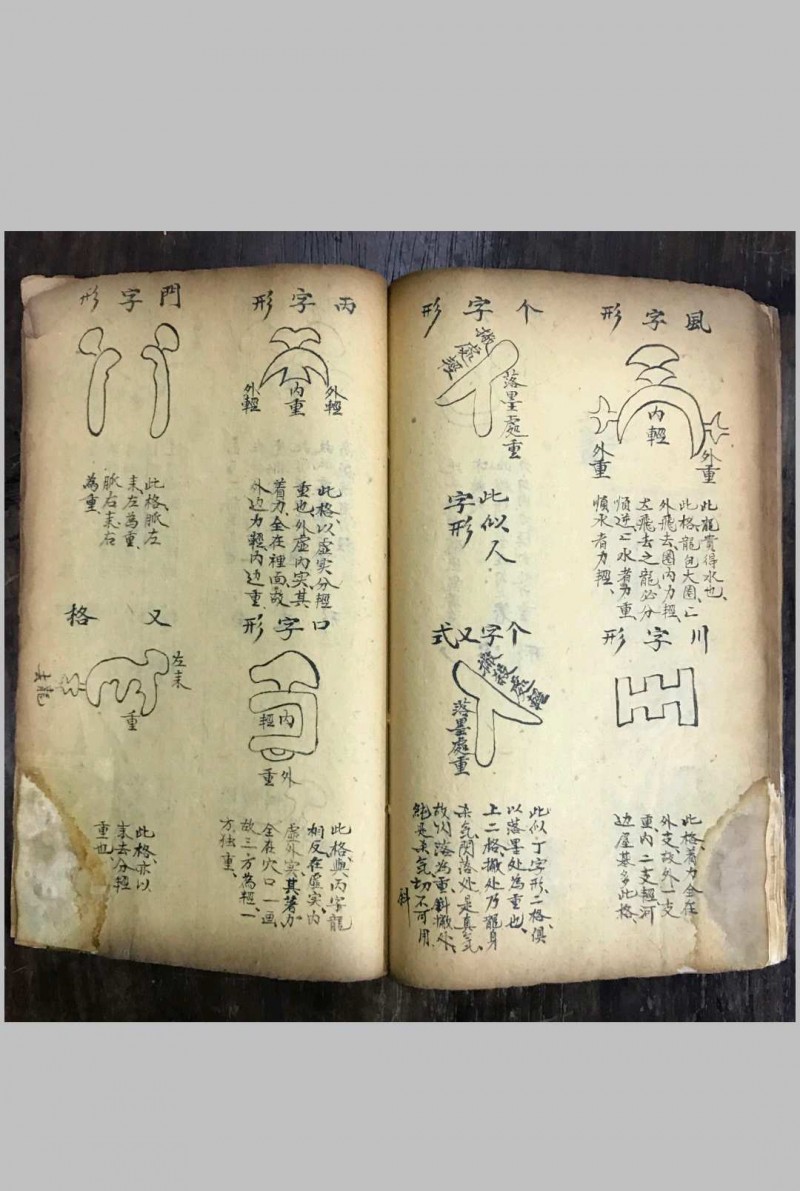 風字形
内輕
外重
外重
此龍貴得水也、
此格、龍包大圈、二
外飛去、圈内力輕、
左飛去之龍必分
順逆、亡水者力重、
順水者力輕、
川字形
此格、着力全在
外支、故外一支
重、内二支輕、河
边屋基多此格、
个字形
處輕
落墨處重
此似人
字形
个字又式
處輕
落墨處重
此似丁字形、二格、俱
以落墨处為重也、
上二格、撇处乃龍身
来気、開落处是真気、
故以落為重、斜撇处、
純是来気、切不可用
斜
丙字形
外輕
内重
外輕
此格、以虚实分輕
重也、外虚内实、其
着力、全在裡面、故
外边力輕、内边重、
口字形
内輕
外重
此格、與丙字龍
相反在虚实、内
虚外实、其著力
全在穴口一画
故三方為輕、一
方独重、
門字形
此格、脈左
来、左為重、
脈右来、右
為重、
又格
左来
去龍
重
此格、亦以
来去分輕
重也、